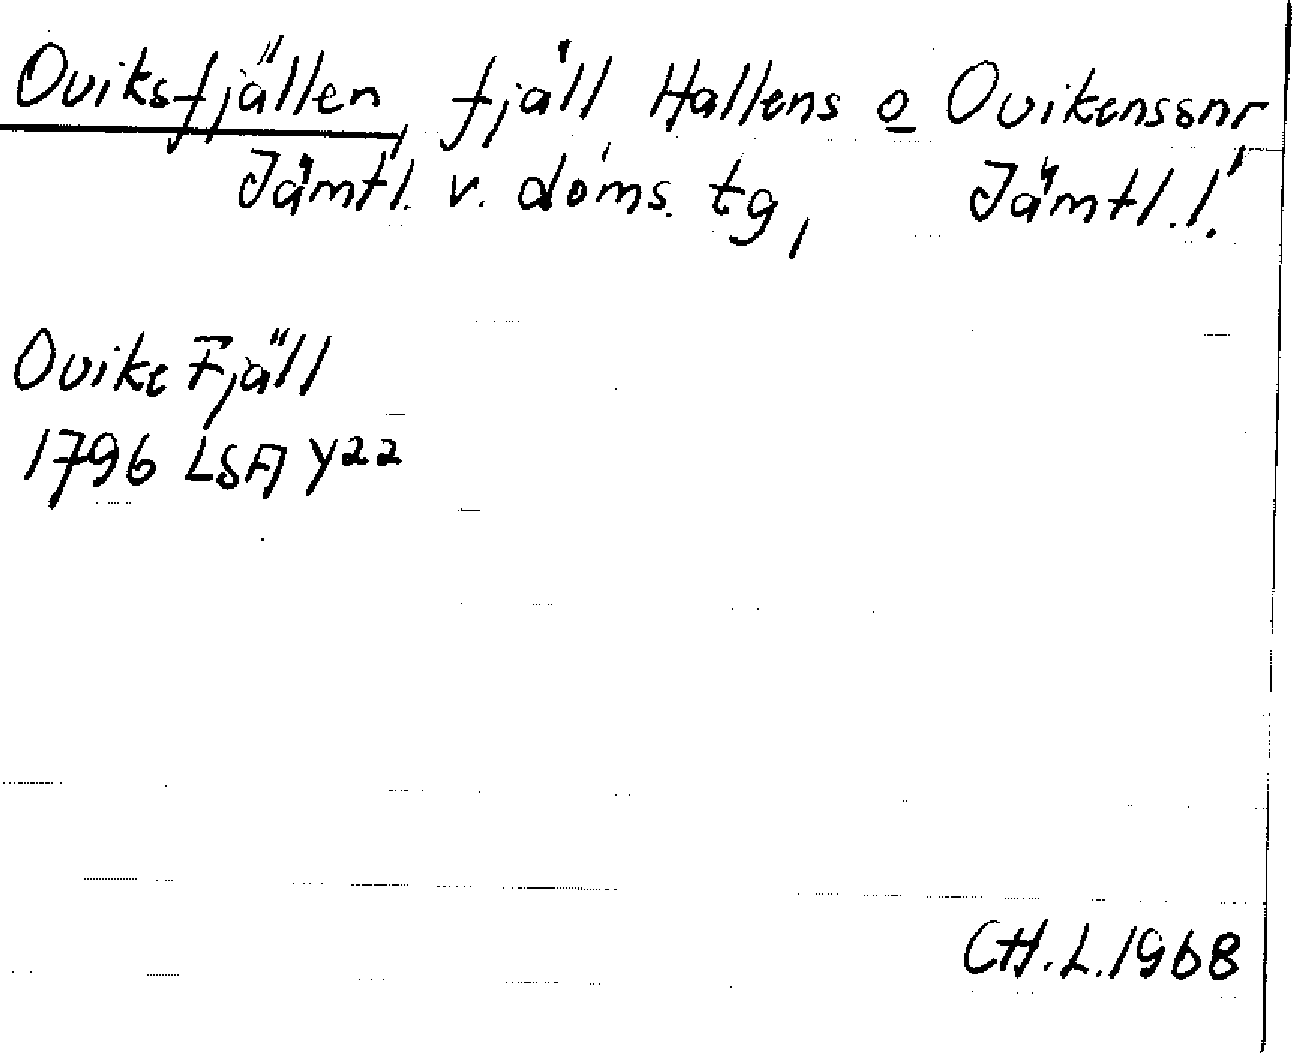 Oviksfjällen, fjäll Hallens o Ovikens snr,
Jämtl. v. doms. tg, Jämtl. l.
Ovike Fjäll
1796 LSA Y22
CH.L.1968